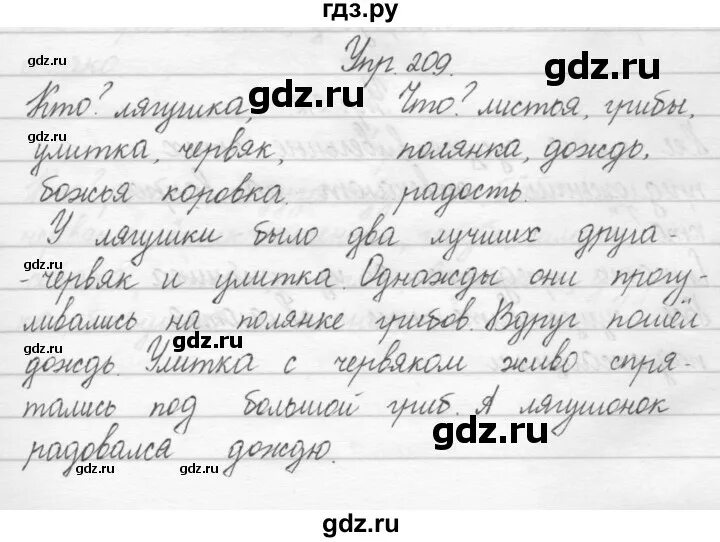 гдз.ру
Упр. 209.
gdz.ru
gdz.ru
Кто? лягушка,
Что? листья, грибы,
gdz.ru
gdz.ru
улитка, червяк,
полянка, дождь,
божья коровка.
радость.
У лягушки было два лучших друга-
gdz.ru
-червяк и улитка. Однажды они прогу-
ливались на полянке грибов. Вдруг пошёл
gdz.ru
gdz.ru
дождь. Улитка с червяком живо спря-
тались под большой гриб. А лягушонок
gdz.ru
радовался дождю.
gdz.ru
gdz.ru
gdz.ru